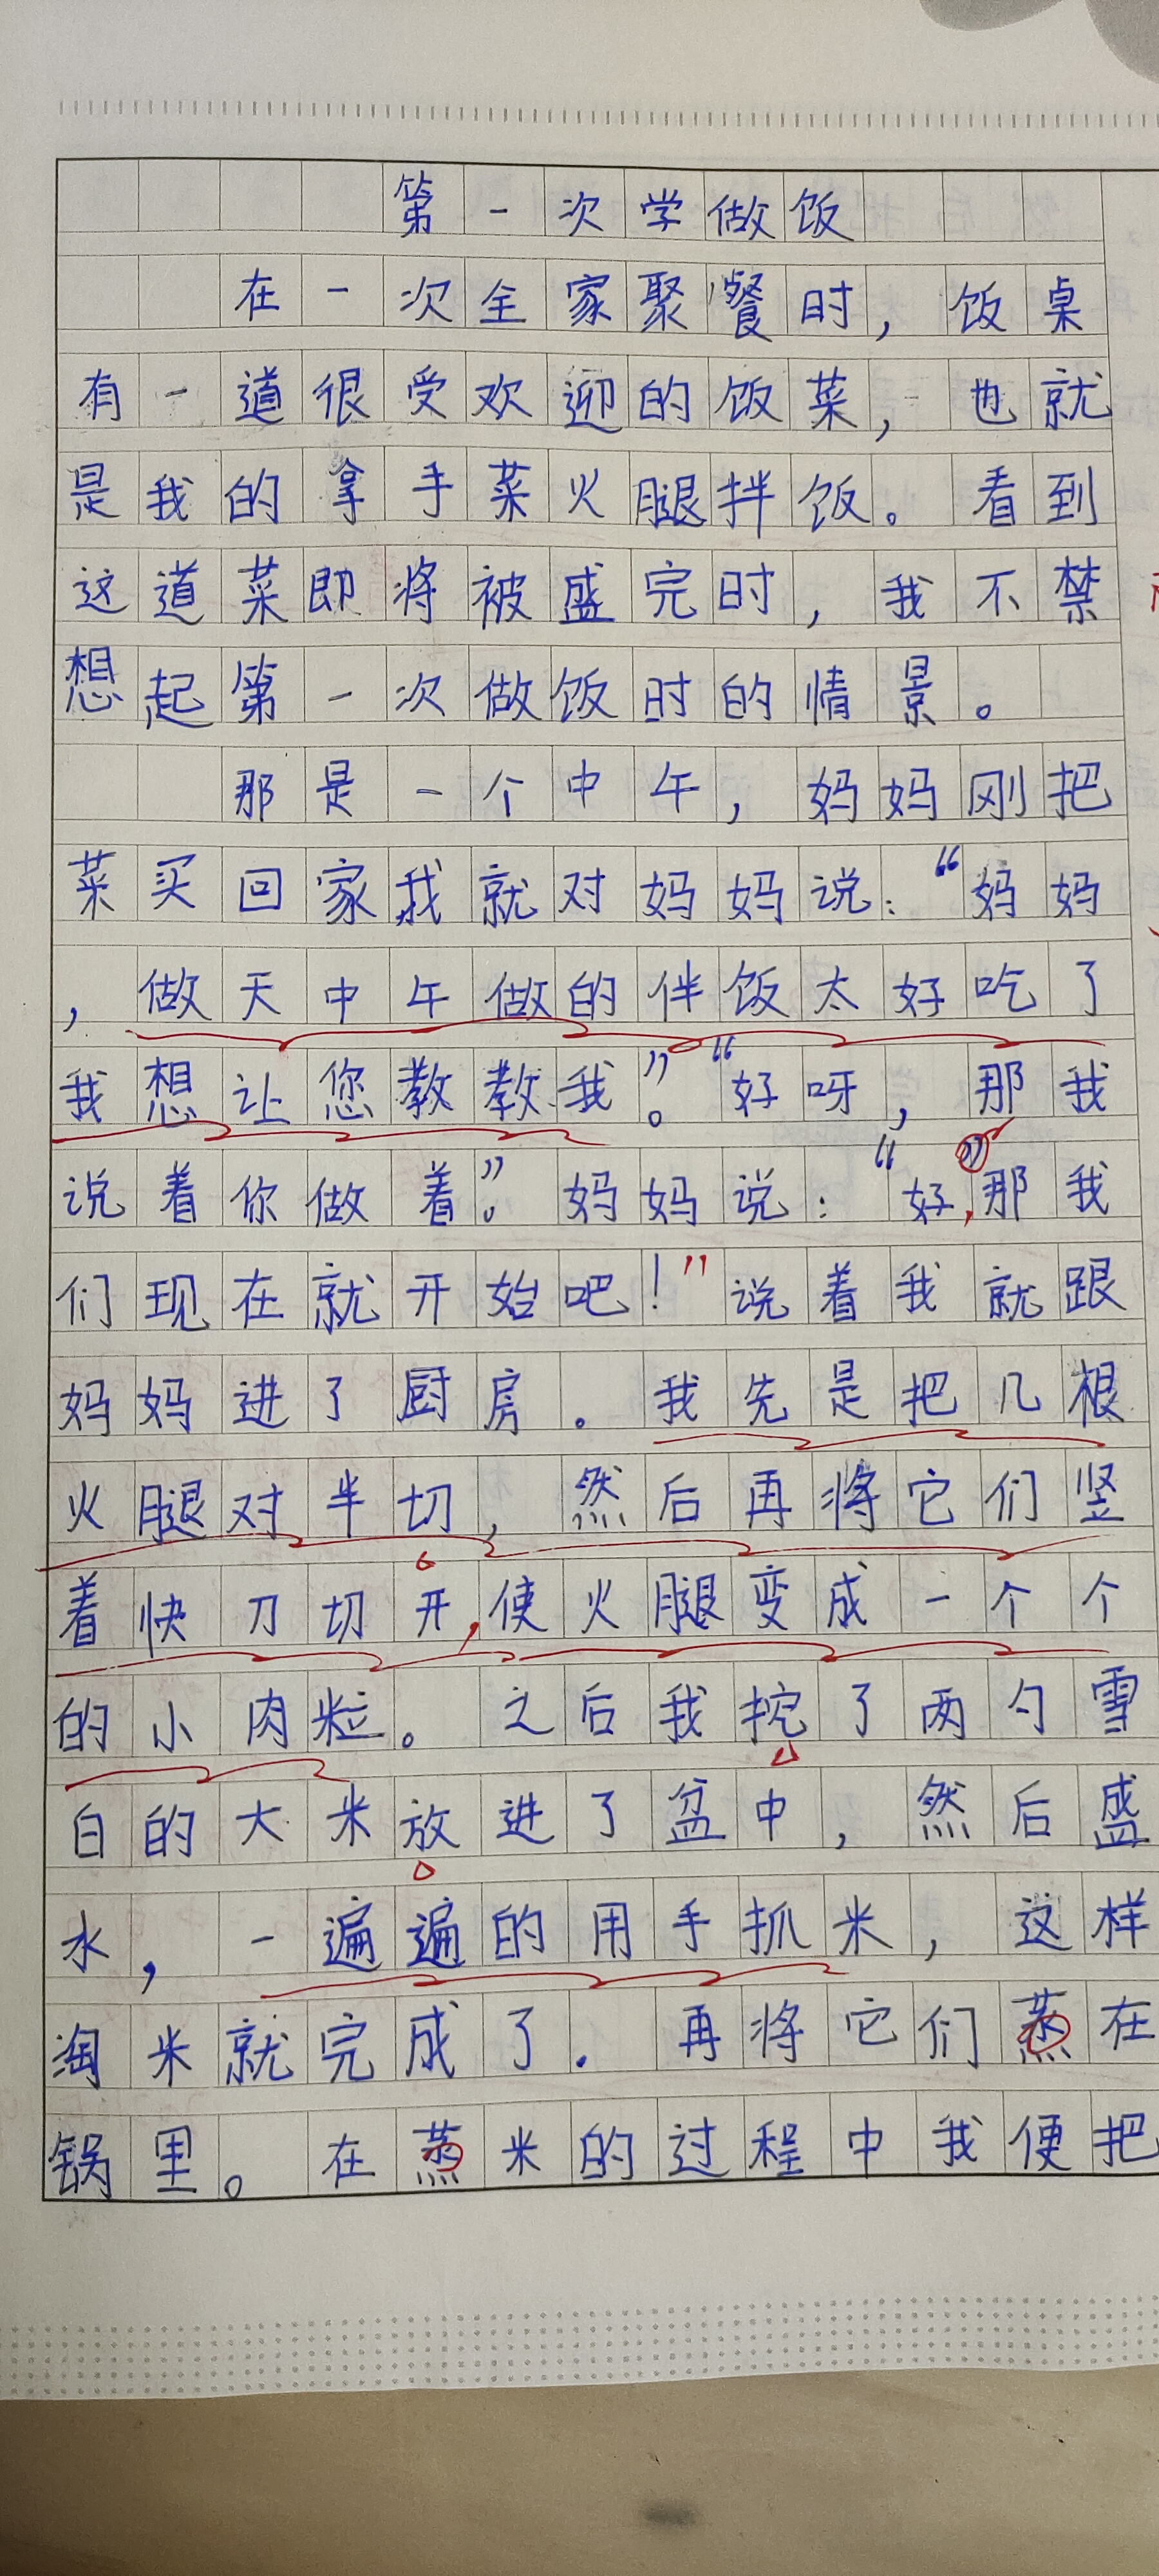 第一次学做饭
在一次全家聚餐时，饭桌
有一道很受欢迎的饭菜，也就
是我的拿手菜火腿拌饭。看到
这道菜即将被盛完时，我不禁
想起第一次做饭时的情景。
那是一个中午，妈妈刚把
菜买回家我就对妈妈说：“妈妈
，做天中午做的伴饭太好吃了
我想让您教教我。”“好呀，那我
说着你做着。”妈妈说：“好，那我
们现在就开始吧！”说着我就跟
妈妈进了厨房。我先是把几根
火腿对半切，然后再将它们竖
着快刀切开，使火腿变成一个个
的小肉粒。之后我挖了两勺雪
白的大米放进了盆中，然后盛
水，一遍遍的用手抓米，这样
淘米就完成了．再将它们蒸在
锅里。在蒸米的过程中我便把